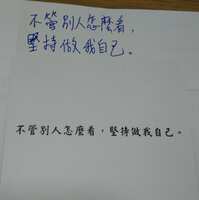 不管別人怎麼看，
堅持做我自己。
不管別人怎麼看，堅持做我自己。